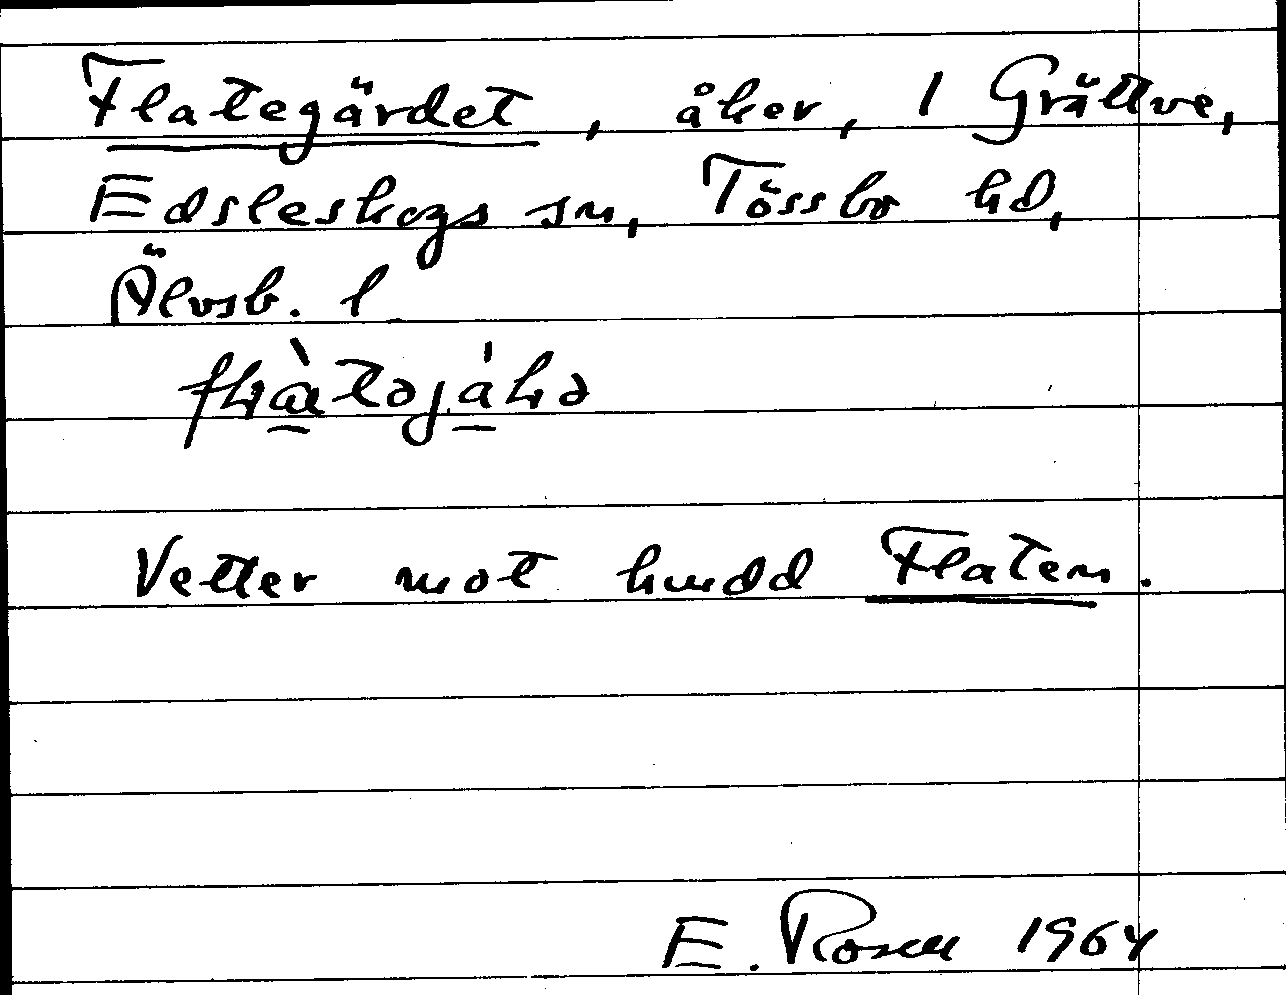 Flategärdet, åker, 1 Grättve,
Edsleskogs sn, Tössbo hd,
Älvsb. l
Vetter mot hemdd Flaten.
E. Rosell 1964